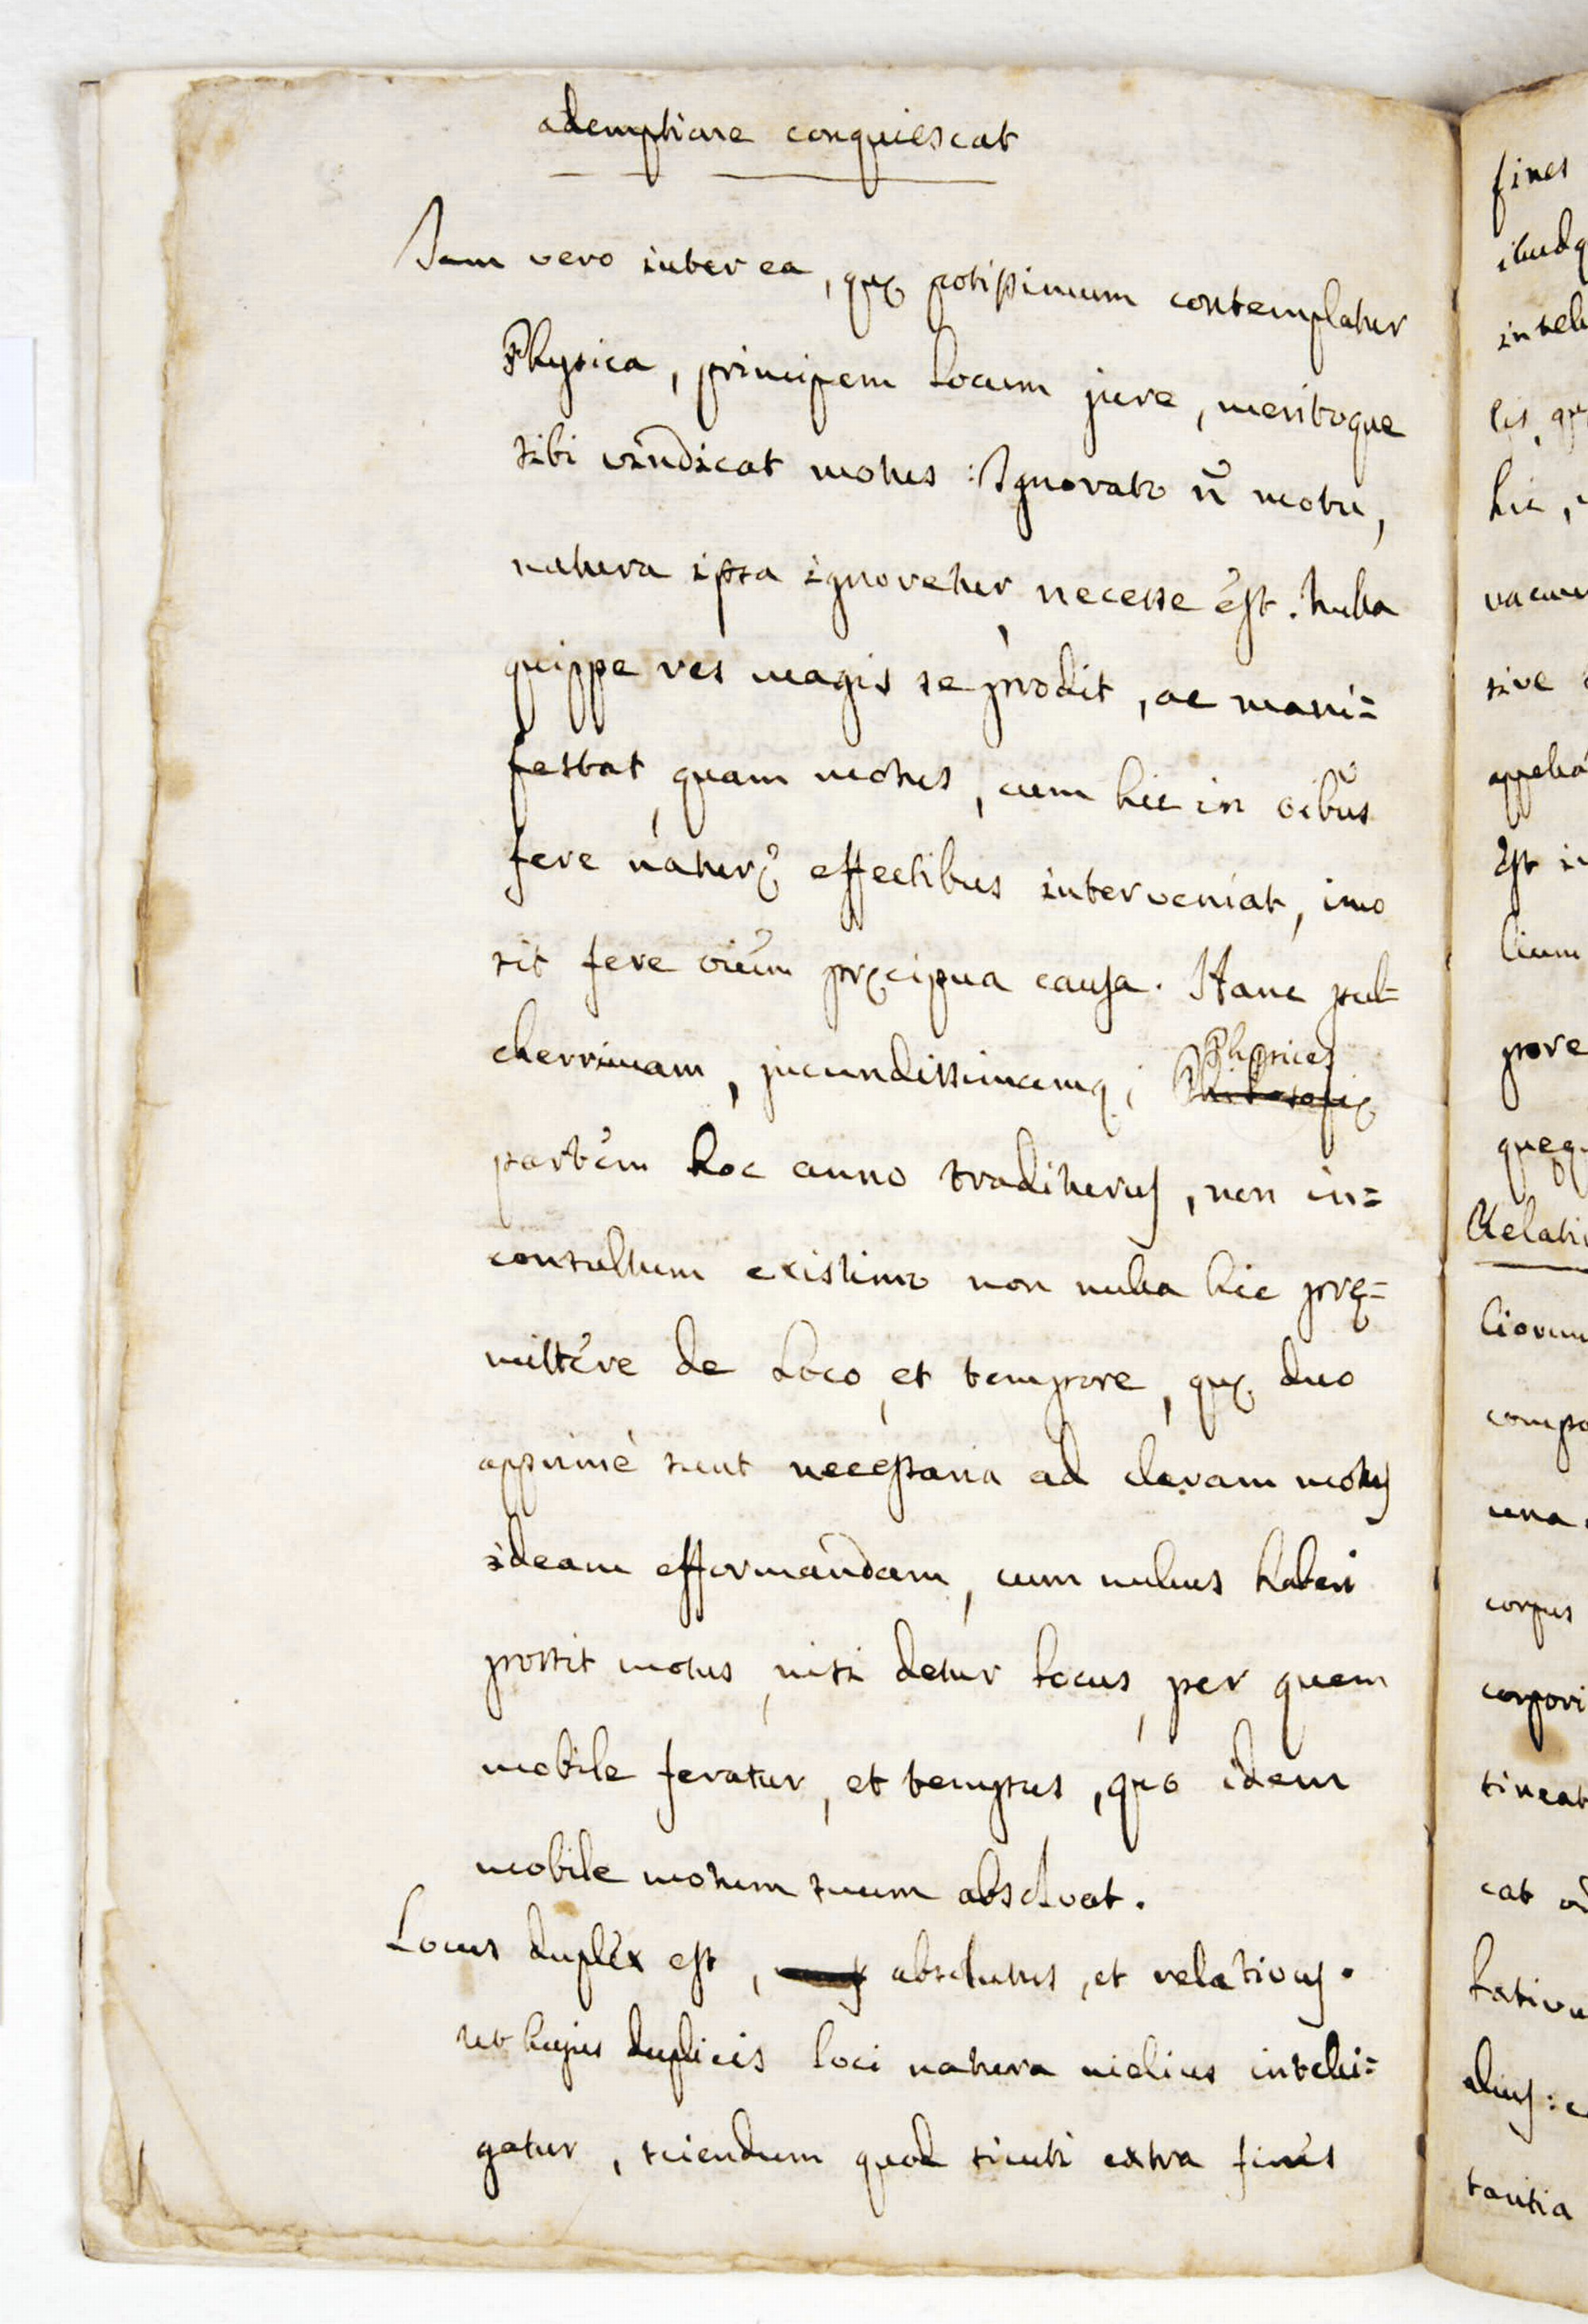 ademptione conquiescat
Jam vero inter ea, quę potissimum contemplatur
Physica, principem locum jure, meritoque
sibi vindicat motus: Ignorato n̄ motu,
natura ipsa ignoretur necesse est. Nulla
quippe res magis se prodit, ac mani=
festat, quam motus, cum hic in oībus
fere naturę effectibus interveniat, imo
sit fere oīum pręcipua causa. Hanc pul=
cherrimam, jucundissimamq; Physices
Philosofię
partem hoc anno traditurus, non in=
consultum existimo non nulla hic prę=
mittere de Loco, et tempore, quę duo
apprimè sunt necessaria ad claram motus
ideam efformandam, cum nullus haberi
possit motus, nisi detur locus, per quem
mobile feratur, et tempus, quo idem
mobile motum suum absolvat.
Locus duplex est, absolutus, et relativus.
ut hujus duplicis loci natura melius intelli=
gatur, sciendum quod sicuti extra fines
fines
hic,
sive
Est
lium
Relati
liorum
una
corpus
corpori
tineat
cat
tantia